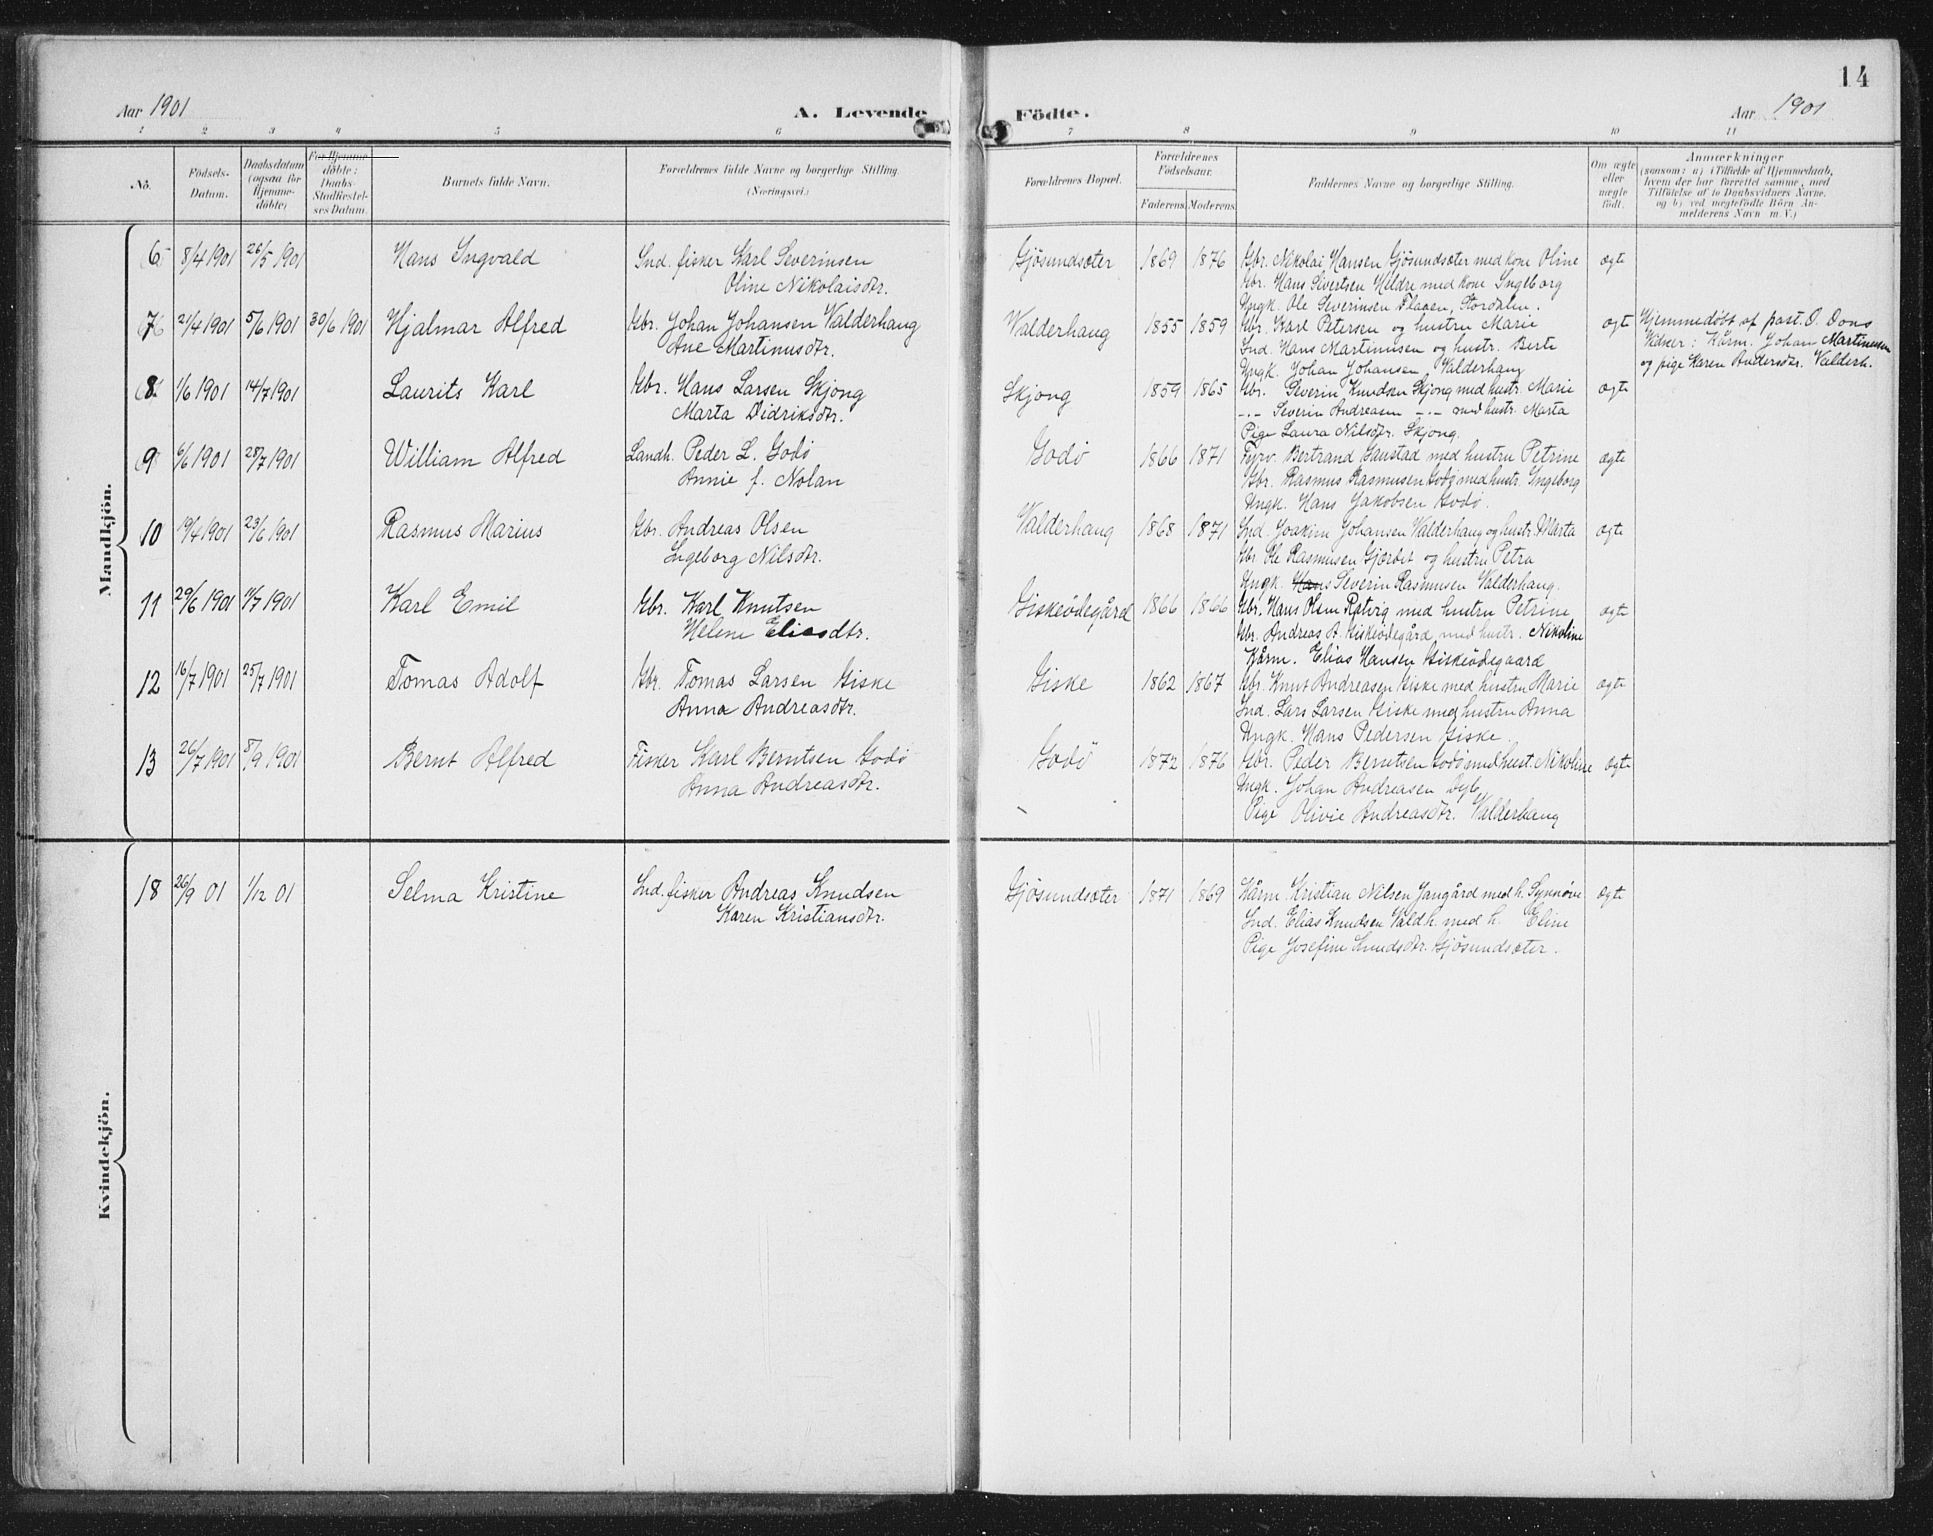 14
Aar 1901 A. Levende Födte. Aar 1901
1 2 3 4 5 6 7 8 9 10 11
No. Födsels-Datum. Daabsdatum (ogsaa for Hjemme-döbte) For Hjemme-döbte: Daabs-Stadfæstel-ses Datum. Barnets fulde Navn. Forældrenes fulde Navne og borgerlige Stilling. (Næringsvei.) Forældrenes Bopæl. Forældrenes Födselsaar. Faderens Moderens Faddernes Navne og borgerlige Stilling. Om ægte eller uægte födt. Anmærkninger
(saasom: a) i Tilfælde af Hjemmedaab,
hvem der har forrettet samme, med
Tilföielse af to Daabsvidners Navne.
og b) ved uægtefödte Börn An-
melderens Navn m. V.)
Mandkjön.
6 8/4 1901 26/5 1901 Hans Ingvald Ind. fisker Karl Severinsen Gjösundsæter 1869 1876 Gbr. Nikolai Hansen Gjösundsæter med kone Oline ægte
Oline Nikolaisdtr. Gbr. Hans Sivertsen Hildre med kone Ingeborg
Ungk. Ole Severinsen Flaaen, Stordalen.
7 21/4 1901 5/6 1901 30/6 1901 Hjalmar Alfred Gbr. Johan Johansen Valderhaug Valderhaug 1855 1859 Gbr. Karl Petersen og hustru Marie ægte Hjemmedöbt af past. O. Dons
Ane Martinusdtr. Ind. Hans Martinusen og hustr. Berte Vidner: Kårm. Johan Martinusen
Ungk. Johan Johansen Valderhaug og pige Karen Andersdtr. Valderh.
8 1/6 1901 14/7 1901 Laurits Karl Gbr. Hans Larsen Skjong Skjong 1859 1865 Gbr. Severin Knudsen Skjong med hustr. Marie ægte
Marta Didriksdtr. -.- Severin Andreasen -.- med hustr. Marta
Pige Laura Nilsdtr. Skjong.
9 6/6 1901 28/7 1901 William Alfred Landh. Peder L. Godö Godö 1866 1871 Fyrv. Bertrand Saustad med hustru Petrine ægte
Annie f. Nolan Gbr. Rasmus Rasmusen Godö med hustr. Ingeborg
Ungk. Hans Jakobsen Godö.
10 19/4 1901 23/6 1901 Rasmus Marius Gbr. Andreas Olsen Valderhaug 1868 1871 Ind. Joakim Johansen Valderhaug og hustr. Marta ægte
Ingeborg Nilsdtr. Gbr. Ole Rasmusen Gjærdet og hustru Petra
Ungk. Hans Severin Rasmusen Valderhaug.
11 29/6 1901 11/7 1901 Karl Emil Gbr. Karl Knutsen Giskeödegård 1866 1866 Gbr. Hans Olsen Rotvig med hustru Petrine ægte
Helene Eliasdtr. Gbr. Andreas A. Giskeödegård med hustr. Nikoline
Kårm. Elias Hansen Giskeödegaard
12 16/7 1901 25/7 1901 Tomas Adolf Gbr. Tomas Larsen Giske Giske 1862 1867 Gbr. Knut Andreasen Giske med hustru Marie ægte
Anna Andreasdtr. Ind. Lars Larsen Giske med hustru Anna
Ungk. Hans Pedersen Giske.
13 26/7 1901 8/9 1901 Bernt Alfred Fisker Karl Berntsen Godö Godö 1872 1876 Gbr. Peder Berntsen Godö med hust. Nikoline ægte
Anna Andreasdtr. Ungk. Johan Andreasen Dyb,
Pige Olivie Andreasdtr. Valderhaug
Kvindekjön.
18 26/9 01 1/12 01 Selma Kristine Ind. fisker Andreas Knudsen Gjösundsæter 1871 1869 Kårm. Kristian Nilsen Jangård med h. Synnöve ægte
Karen Kristiansdtr. Ind. Elias Knudsen Valdh. med h. Eline
Pige Josefine Knudsdtr. Gjösundsæter.